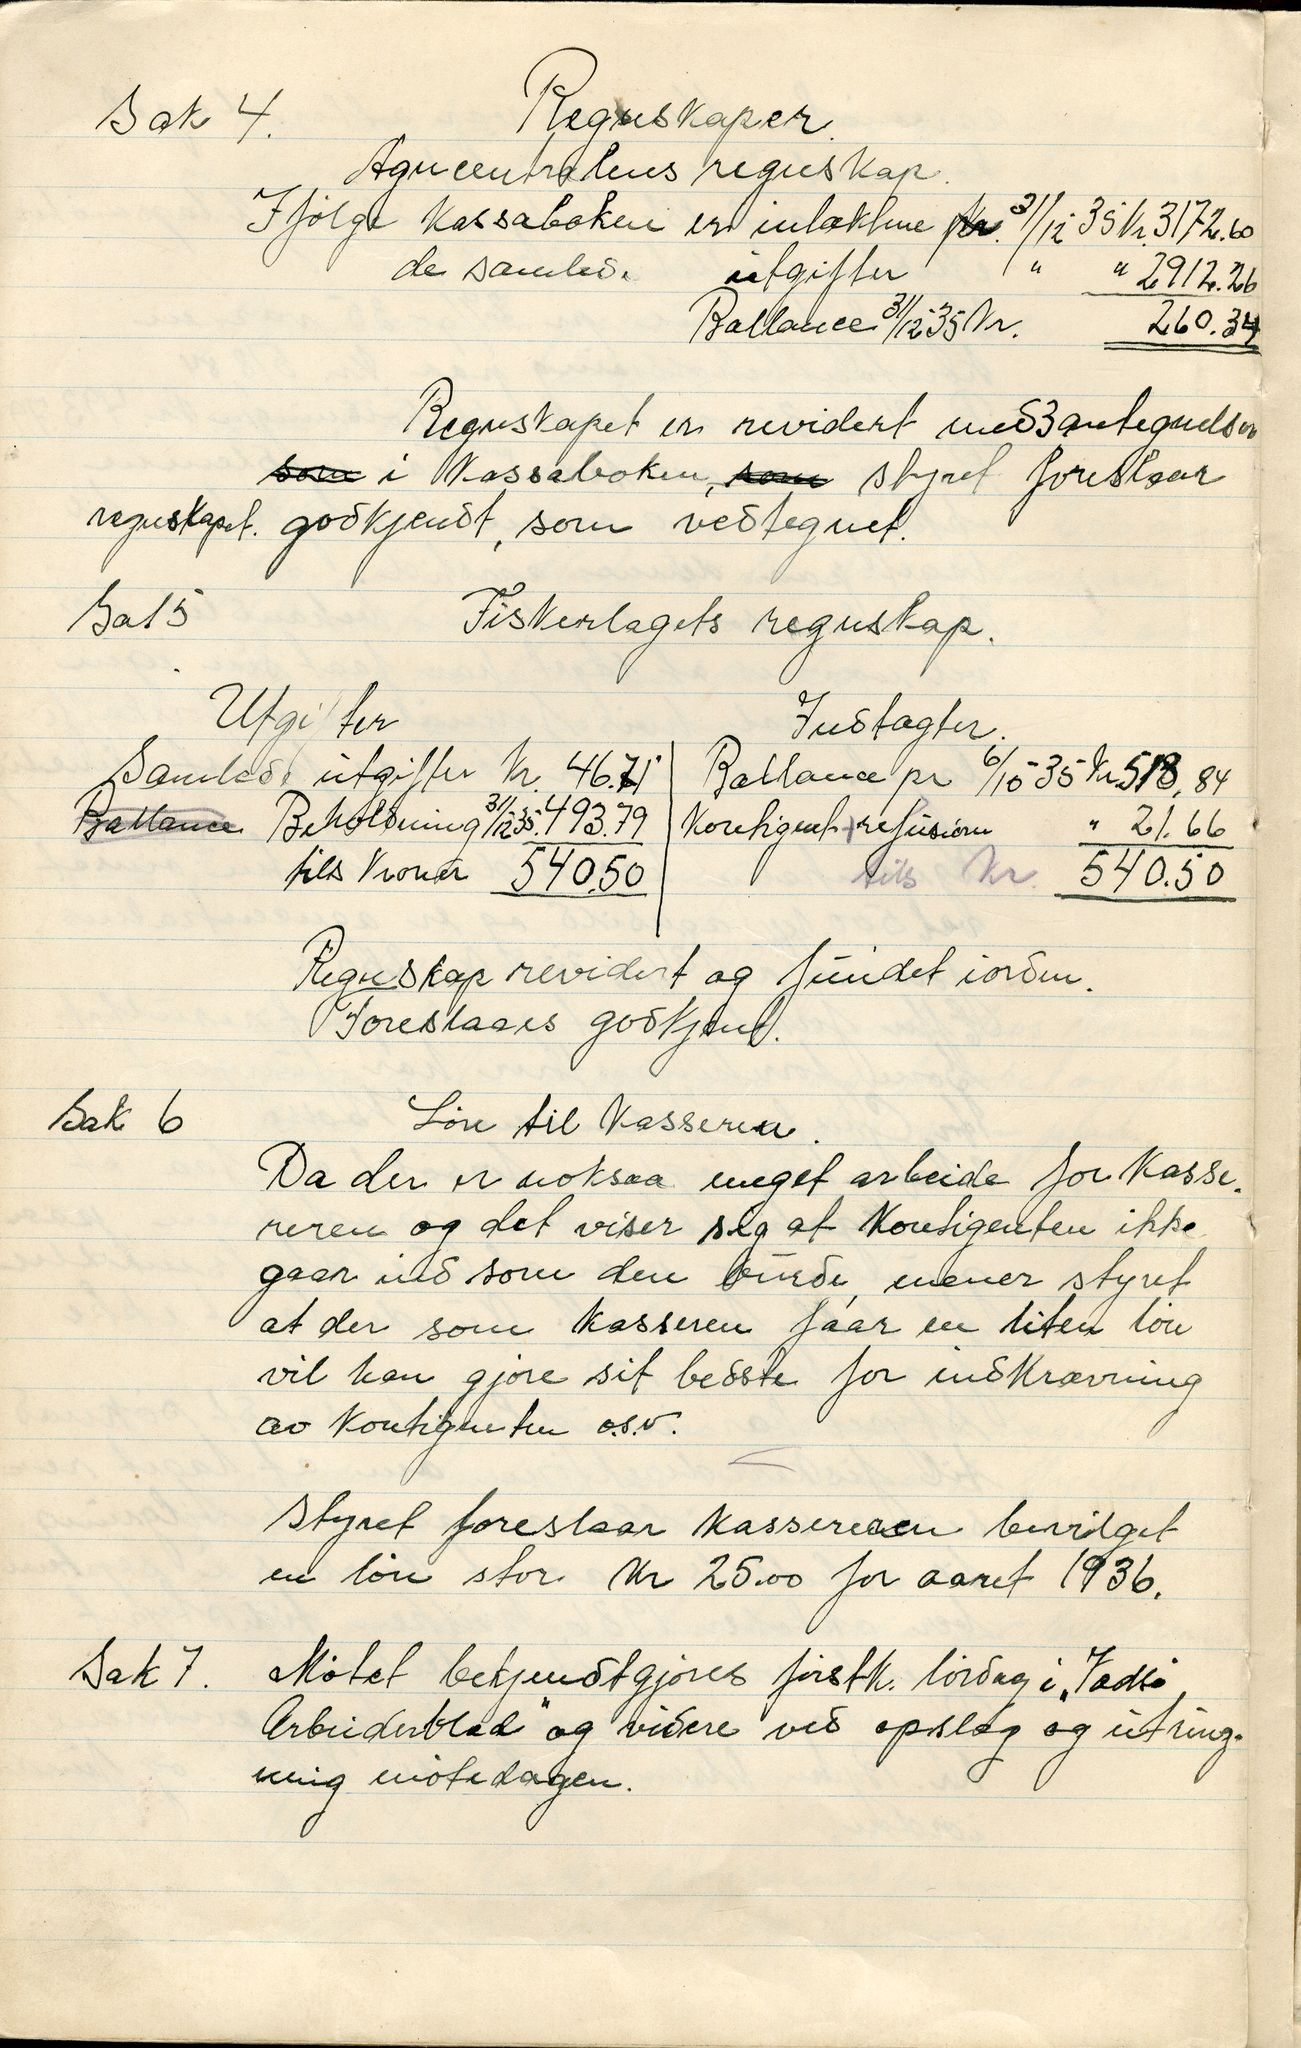 Sak 4. Regnskaper.
Agncentralens regnskap.
Ifølge Kassaboken er intektene pr. 31/12 35 Kr. 3172.60
de samlede utgifter " " 2912.26
Ballance 31/12 35 Kr. 260.34
Regnskapet er revidert med 3 antegnelser
som i Kassaboken, som styret foreslaar
regnskapet. godkjendt, som vedtegnet.
Sak 5 Fiskerlagets regnskap.
Utgifter Indtagter.
Samlede utgifter Kr. 46.71 Ballance pr 6/10 35 Kr. 518.84
Ballance Beholdning 31/12 35. 493.79 Kontigent refusion " 21.66
tils Kroner 540.50 tils Kr. 540.50
Regnskap revidert og fundet iorden.
Foreslaaes godkjent.
Sak 6 Løn til Kasseren.
Da der er noksaa meget arbeide for Kasse-
reren og det viser sig at Kontigenten ikke
gaar ind som den burde, mener styret
at der som Kasseren faar en liten løn
vil han gjøre sit bedste for indkrævning
av Kontigenten o.s.v.
Styret foreslaar Kassereren bevilget
en løn stor Kr 25.00 for aaret 1936.
Sak 7. Møtet bekjendtgjøres førstk. lørdag i "Vadsø
Arbeiderblad" og videre ved opslag og utring-
ning møtedagen.